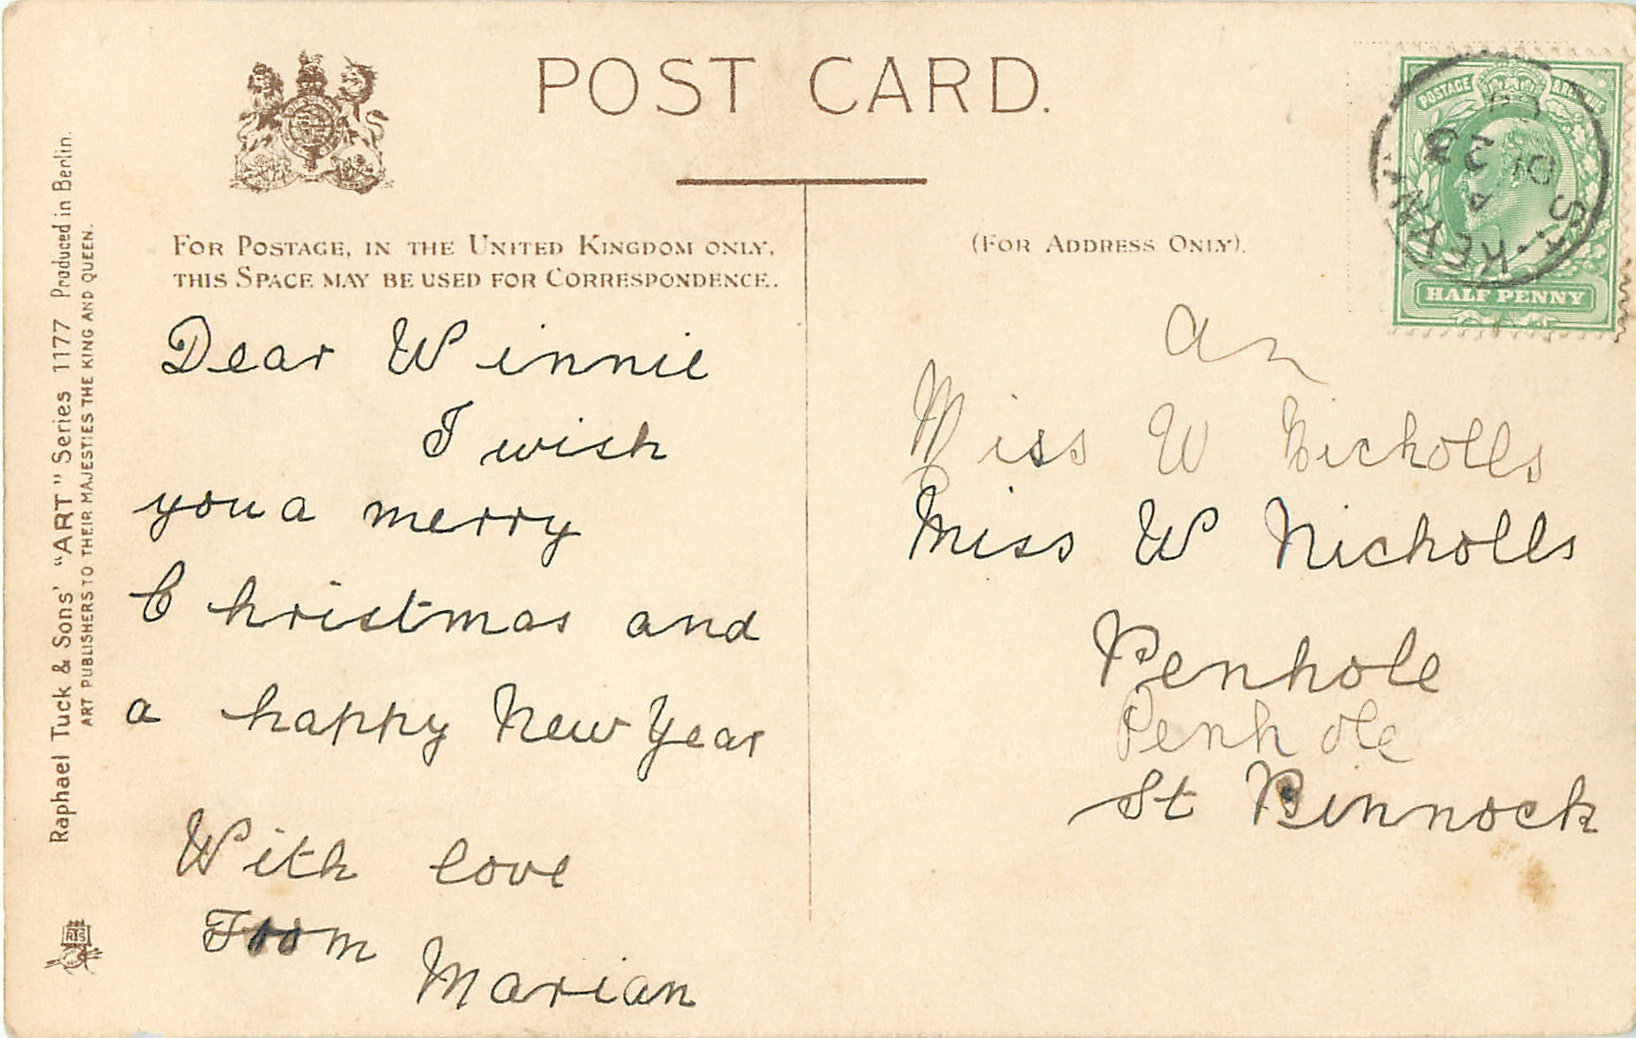 POST CARD.
FOR POSTAGE, IN THE UNITED KINGDOM ONLY,
THIS SPACE MAY BE USED FOR CORRESPONDENCE.
(FOR ADDRESS ONLY).
Raphael Tuck & Sons' "ART" Series 1177 Produced in Berlin.
ART PUBLISHERS TO THEIR MAJESTIES THE KING AND QUEEN.
Dear Winnie
I wish
you a merry
Christmas and
a happy New Year
With love
From
Marian
an
Miss W Nicholls
Miss W Nicholls
Penhole
Penhole
St Pinnock
POSTAGE & REVENUE
HALF PENNY
ST. KEYNE
A
DE 23
RTS